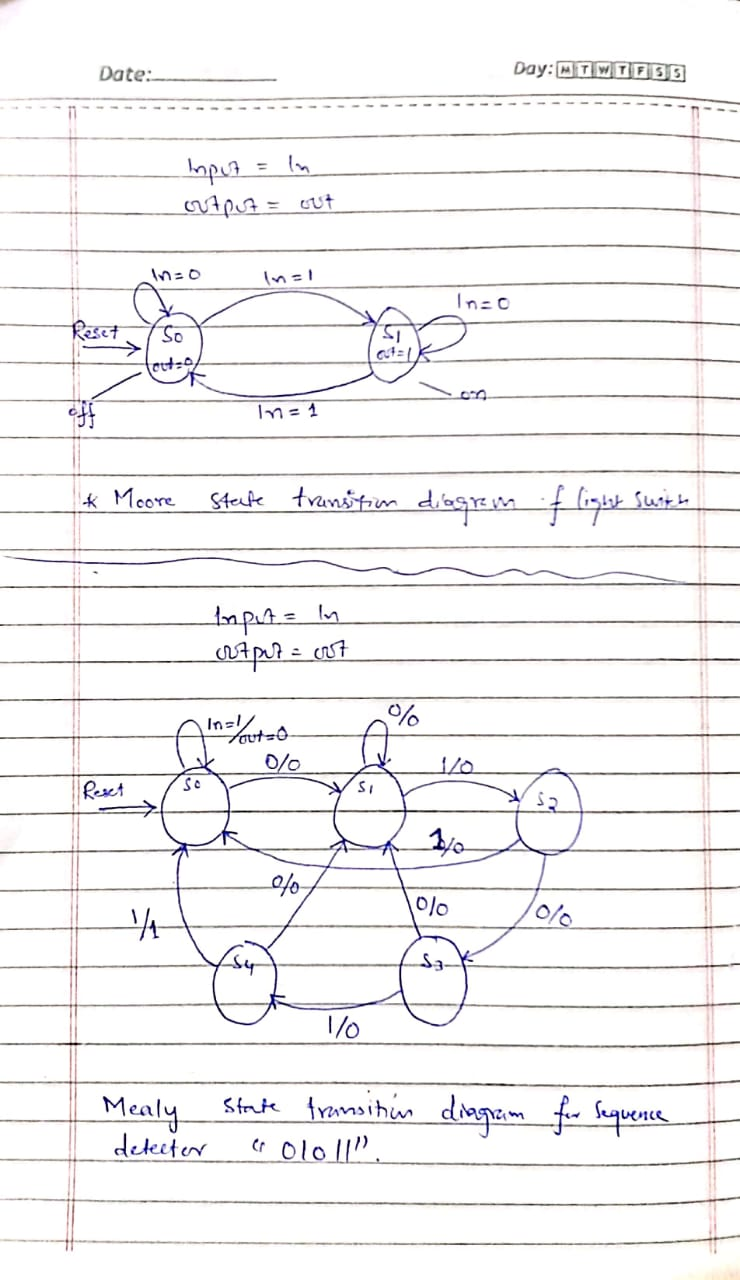 Date:
Day: M T W T F S S
Input = In
output = out
In=0
In=1
In=0
Reset
S0
out=0
S1
out=1
off
on
In = 1
* Moore state transition diagram of light switch
Input = In
output = out
In=1/out=0
0/0
0/0
1/0
Reset
S0
S1
S2
1/0
0/0
0/0
0/0
1/1
S4
S3
1/0
Mealy state transition diagram for sequence
detector "01011".